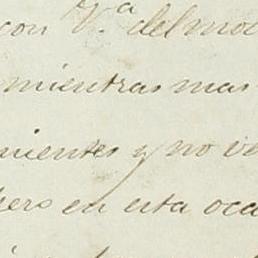 con V.ª del mo
mientras mas
nientes y no ve
pero en esta oca